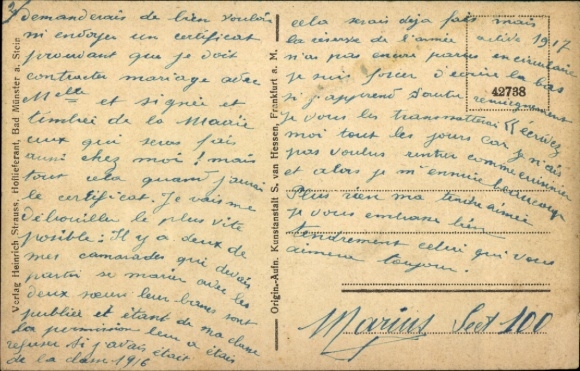 3/
demanderais de bien vouloir
m'envoyer un certificat
prouvant que je doit
contracter mariage avec
Melle et signée et
timbrée de la Mairie
ceux qui seras fais
aussi chez moi ! mais
tout cela quand j'aurai
le certificat. Je vais me
débrouiller le plus vite
posible : Il y a deux de
mes camarades qui devais
partir se marier avec les
deux sœurs leur bans sont
publiée et étant de ma classe
la permission leur a étais
refusé si j'avais était
de la classe 1916
cela serais déja fais mais
la réserve de l'armée active 1917
n'a pas encore parus en circulaire
je suis forcer d'ecrire la bas
si j'apprend d'autre renseignement
je vous les transmettrai écrivez
moi tout les jours car je n'ais
pas voulus rentrer comme cuisinier
et alors je m'ennuie beaucoup
Plus rien ma tendre aimée
je vous embrasse bien
tendrement celui qui vous
aimera toujour.
Marius Sect 100
42738
Verlag Heinrich Strauss, Hoflieferant, Bad Münster a. Stein
Origin.-Aufn. Kunstanstalt S. van Hessen, Frankfurt a. M.